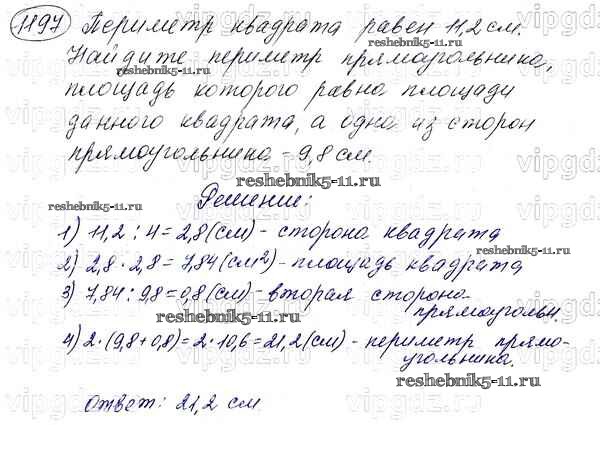 1197 Периметр квадрата равен 11,2 см.
reshebnik5-11.ru
Найдите периметр прямоугольника,
площадь которого равна площади
данного квадрата, а одна из сторон
прямоугольника - 9,8 см.
reshebnik5-11.ru
Решение:
reshebnik5-11.ru
1) 11,2 : 4 = 2,8 (см) - сторона квадрата
reshebnik5-11.ru
2) 2,8 · 2,8 = 7,84 (см²) - площадь квадрата
3) 7,84 : 9,8 = 0,8 (см) - вторая сторона
прямоугольн.
reshebnik5-11.ru
4) 2·(9,8+0,8) = 2·10,6 = 21,2 (см) - периметр прямо-
угольника.
reshebnik5-11.ru
Ответ: 21,2 см